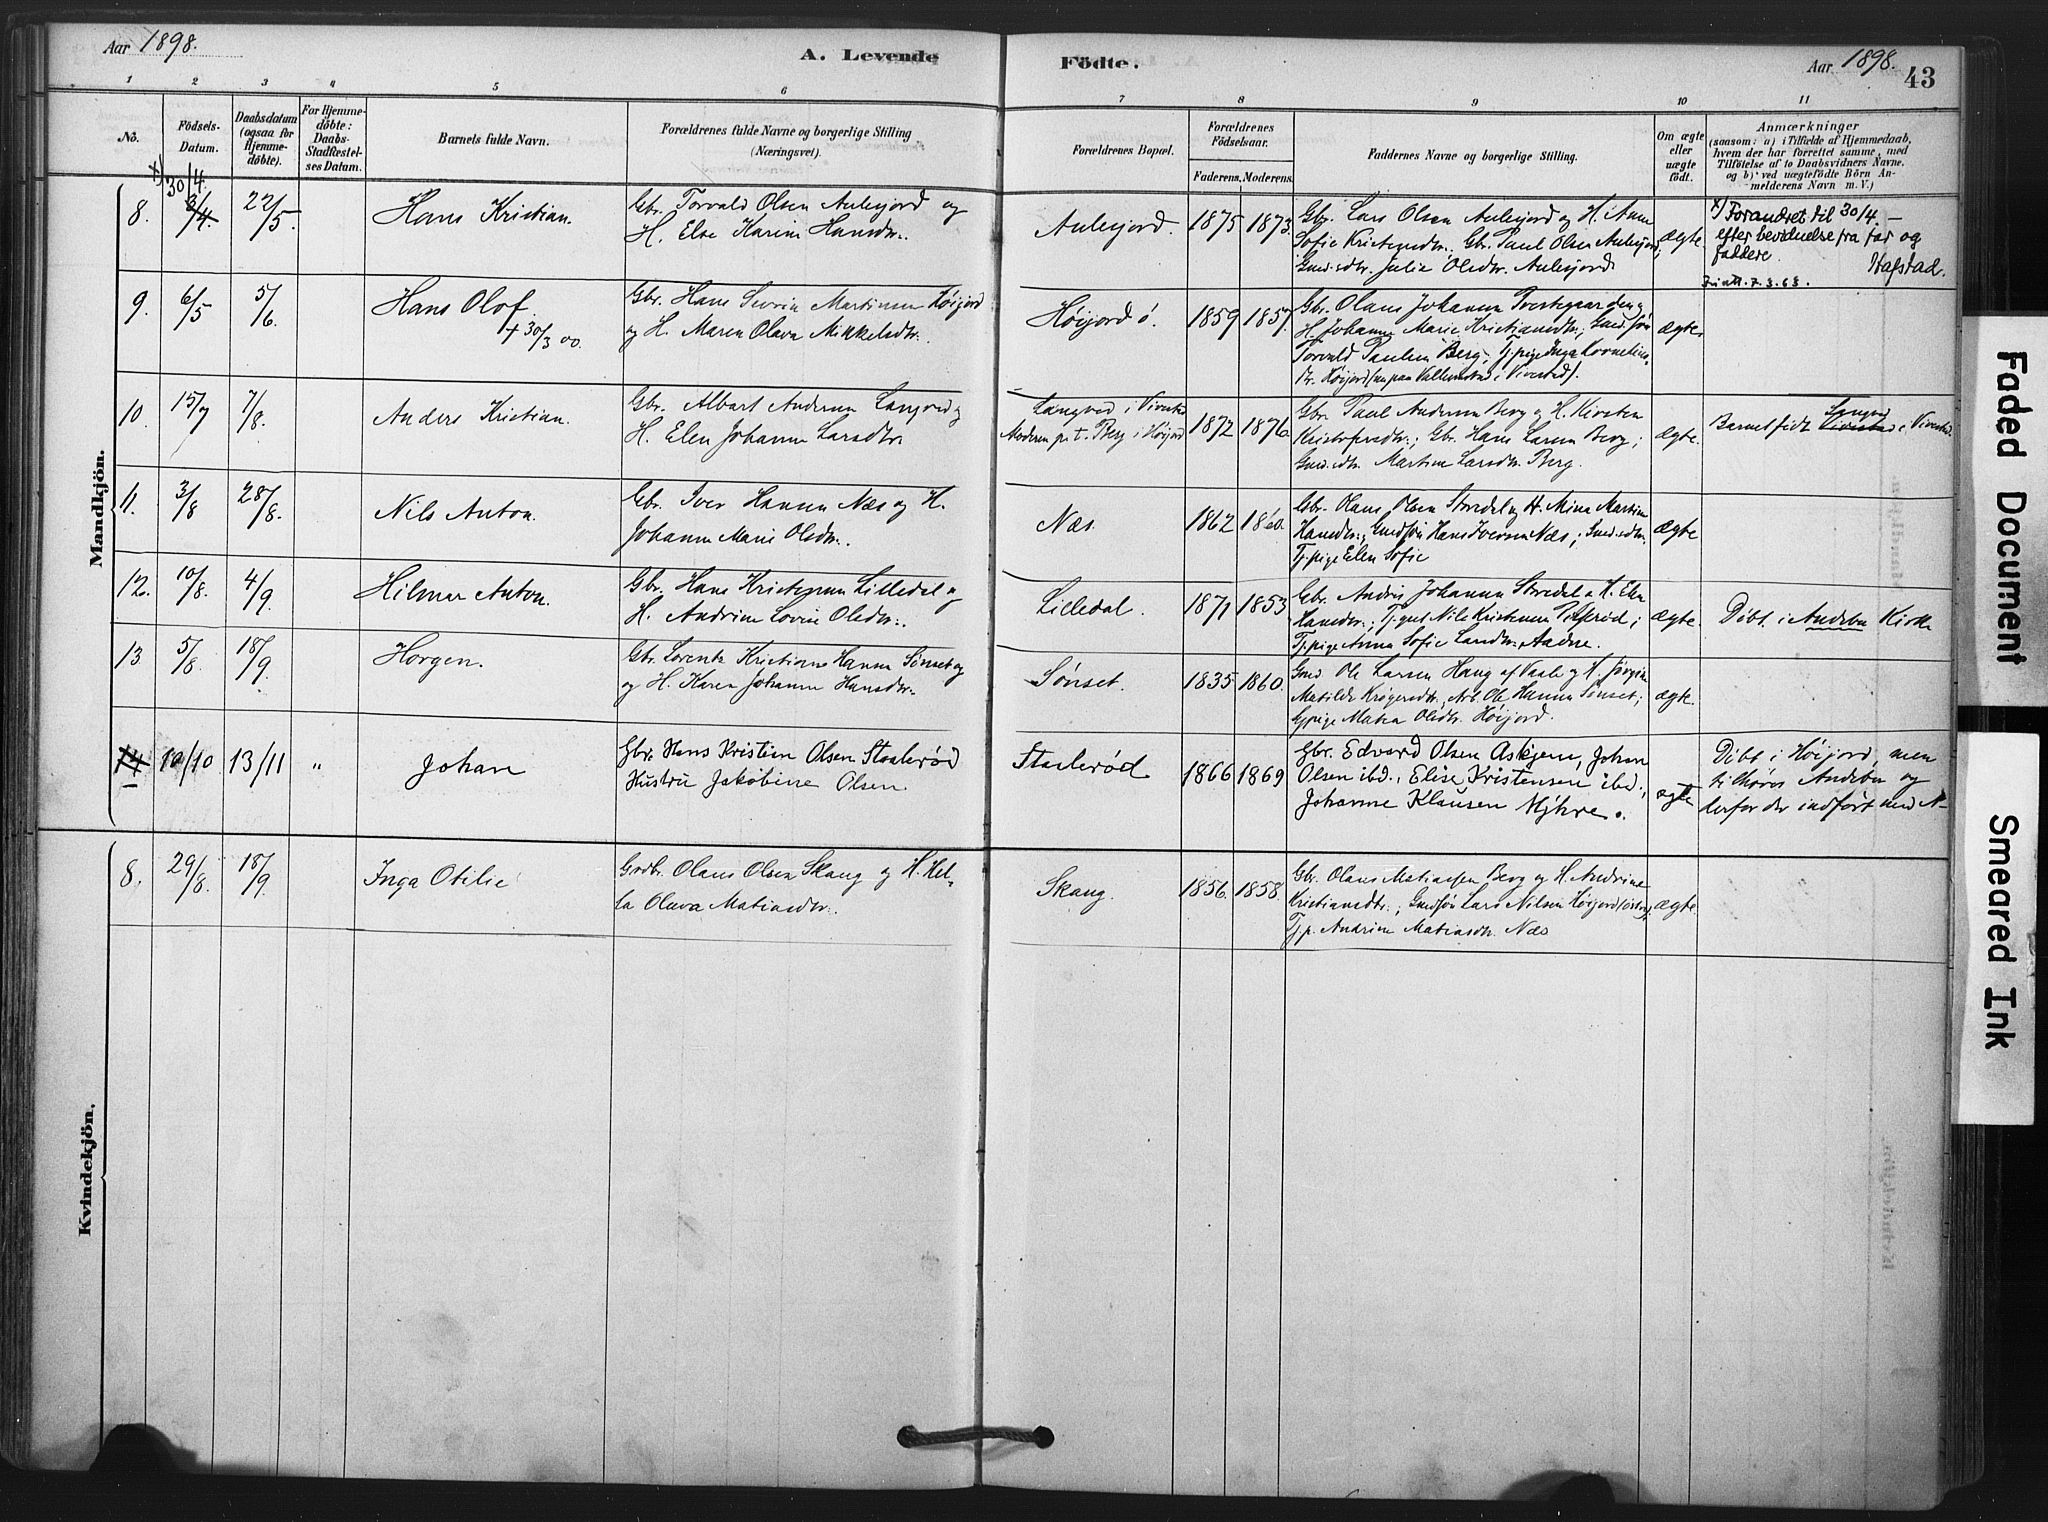 Aar 1898.
A. Levende
Födte.
Aar 1898.
43
1 2 3 4 5 6 7 8 9 10 11
No.
Födsels-
Datum.
Daabsdatum
(ogsaa for
Hjemme-
döbte).
For Hjemme-
döbte:
Daabs-
Stadfæstel-
ses Datum.
Barnets fulde Navn.
Forældrenes fulde Navne og borgerlige Stilling
(Næringsvei).
Forældrenes Bopæl.
Forældrenes
Födselsaar.
Faderens. Moderens.
Faddernes Navne og borgerlige Stilling.
Om ægte
eller
uægte
födt.
Anmærkninger
(saasom: a) i Tilfælde af Hjemmedaab,
hvem der har forrettet samme, med
Tilföielse af to Daabsvidners Navne,
og b) ved uægtefödte Börn An-
melderens Navn m. V.)
Mandkjön.
x) 30/4.
8. 3/4 22/5. Hans Kristian.
Gbr. Torvald Olsen Aulesjord og
H. Else Karine Hansdtr.
Aulesjord. 1875 1873.
Gbr. Lars Olsen Aulesjord og H. Anne
Sofie Kristensdtr.; Gbr. Paul Olsen Aulesjord;
Gmd.sdtr. Julie Olsdtr. Aulesjord
ægte
x) Forandret til 30/4 –
efter bevidnelse fra far og
faddere.
Hafstad.
7.3.63.
9. 6/5 5/6. Hans Olof
+ 30/3 00.
Gbr. Hans Sevrin Martinsen Höijord
og H. Maren Olava Mikkelsdtr.
Höijord ö. 1859 1857.
Gbr. Olaus Johansen Prestegaarden og
H. Johanne Marie Kristiansdtr.; Gmd.sön
Torvald Paulsen Berg; Tj.pige Inga Kornelius-
dtr. Höijord
ægte
10. 15/7 7/8. Anders Kristian.
Gbr. Albert Andersen Langved og
H. Elen Johanne Larsdtr.
Langved i Vivestad
Moderen p.t. Berg i Höijord
1872 1876.
Gbr. Paul Andersen Berg og H. Kirsten
Kristofersdtr.; Gbr. Hans Larsen Berg;
Gmd.sdtr. Martine Larsdtr. Berg.
ægte.
Langved
Barnet födt Vivestad i Vivestad.
11. 3/8 28/8. Nils Anton.
Gbr. Iver Hansen Næs og H.
Johanne Marie Olsdtr.
Næs. 1862 1860.
Gbr. Olaus Olsen Storedal og H. Mina Martine
Hansdtr.; Gmdsön Hans Iversen Næs; Gmd.sdtr.
Tj.pige Elen Sofie
ægte
12. 10/8. 4/9. Hilmar Anton.
Gbr. Hans Kristensen Lilledal og
H. Andrine Lovise Olsdtr.
Lilledal. 1871 1853
Gbr. Anders Johansen Storedal o H. Elen
Hansdtr.; Tj.gut Nils Kristensen
Tj.pige Anna Sofie
ægte.
Döbt i Andebu Kirke
13. 5/8. 18/9. Horgen.
Gbr. Lorentz Kristian Hansen Sönset og
og H. Karen Johanne Hansdtr.
Sönset. 1835 1860.
Gmd Ole Larsen Haug af Vaale og H. Jörgine
Matilde Krögersdtr., Arb. Ole Hansen Sönset;
Tj.pige Matea Olsdtr. Höijord.
ægte.
14 10/10 13/11 „ Johan
Gbr. Hans Kristian Olsen Staalerød
Hustru Jakobine Olsen.
Staalerød 1866 1869
Gbr. Edvard Olsen Askjem, Johan
Olsen ibd., Elise Kristensen ibd.,
Johanne Klausen Myhre.
ægte
Döbt i Höijord, men
tilhörer Andebu og
derfor der indfört med N–
Kvindekjön.
8. 29/8. 18/9. Inga Otilie
Grdbr. Olaus Olsen Skaug og H. Hel-
la Olava Matiasdtr.
Skaug. 1856. 1858.
Gbr. Olaus Matiassen Berg og H. Andrine
Kristiansdtr.; Gmdsön Lars Nilsen Höijord
Tj.p. Andrine Matiasdtr. Næs
ægte.
Faded Document
Smeared Ink